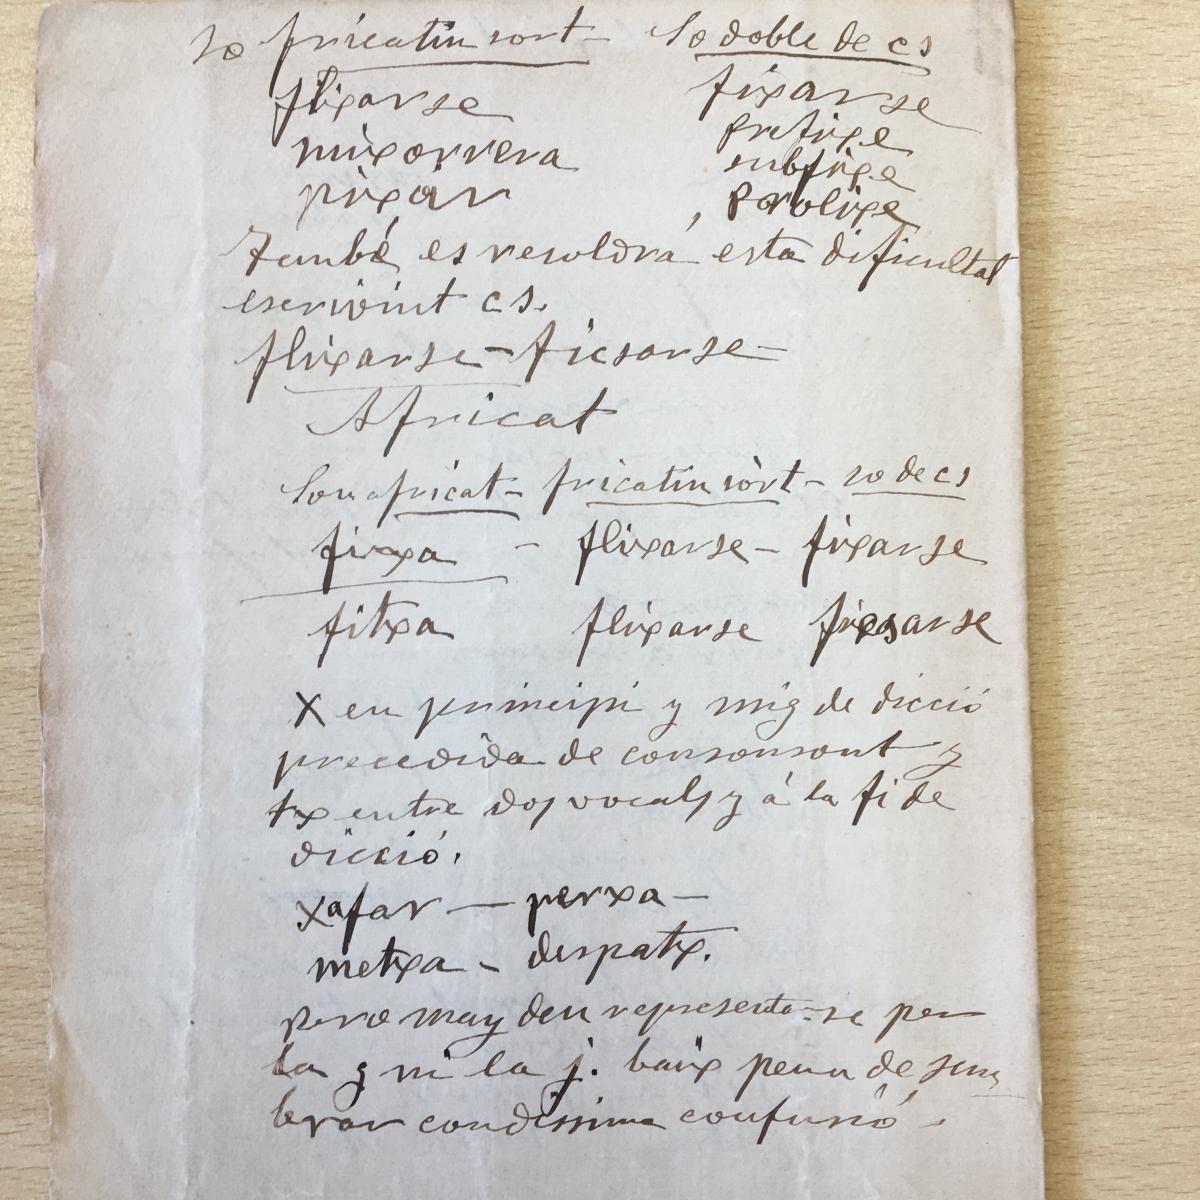 So fricatiu sort- So doble de cs
flixarse fixarse
mixorrera prefixe
pixar subfixe
prolixe
També es resoldrá esta dificultat
escrivint cs.
flixarse - ficsarse -
Africat
So africat - fricatiu sòrt - so de cs
fixa - flixarse - fixarse
fitxa flixarse ficsarse
X en principi y mig de dicció
precedida de consonant y
tx entre dos vocals y á la fi de
dicció.
xafar - perxa -
metxa - despatx.
pero may deu representarse per
la g ni la j. baix pena de sem
brar condíssima confusió.